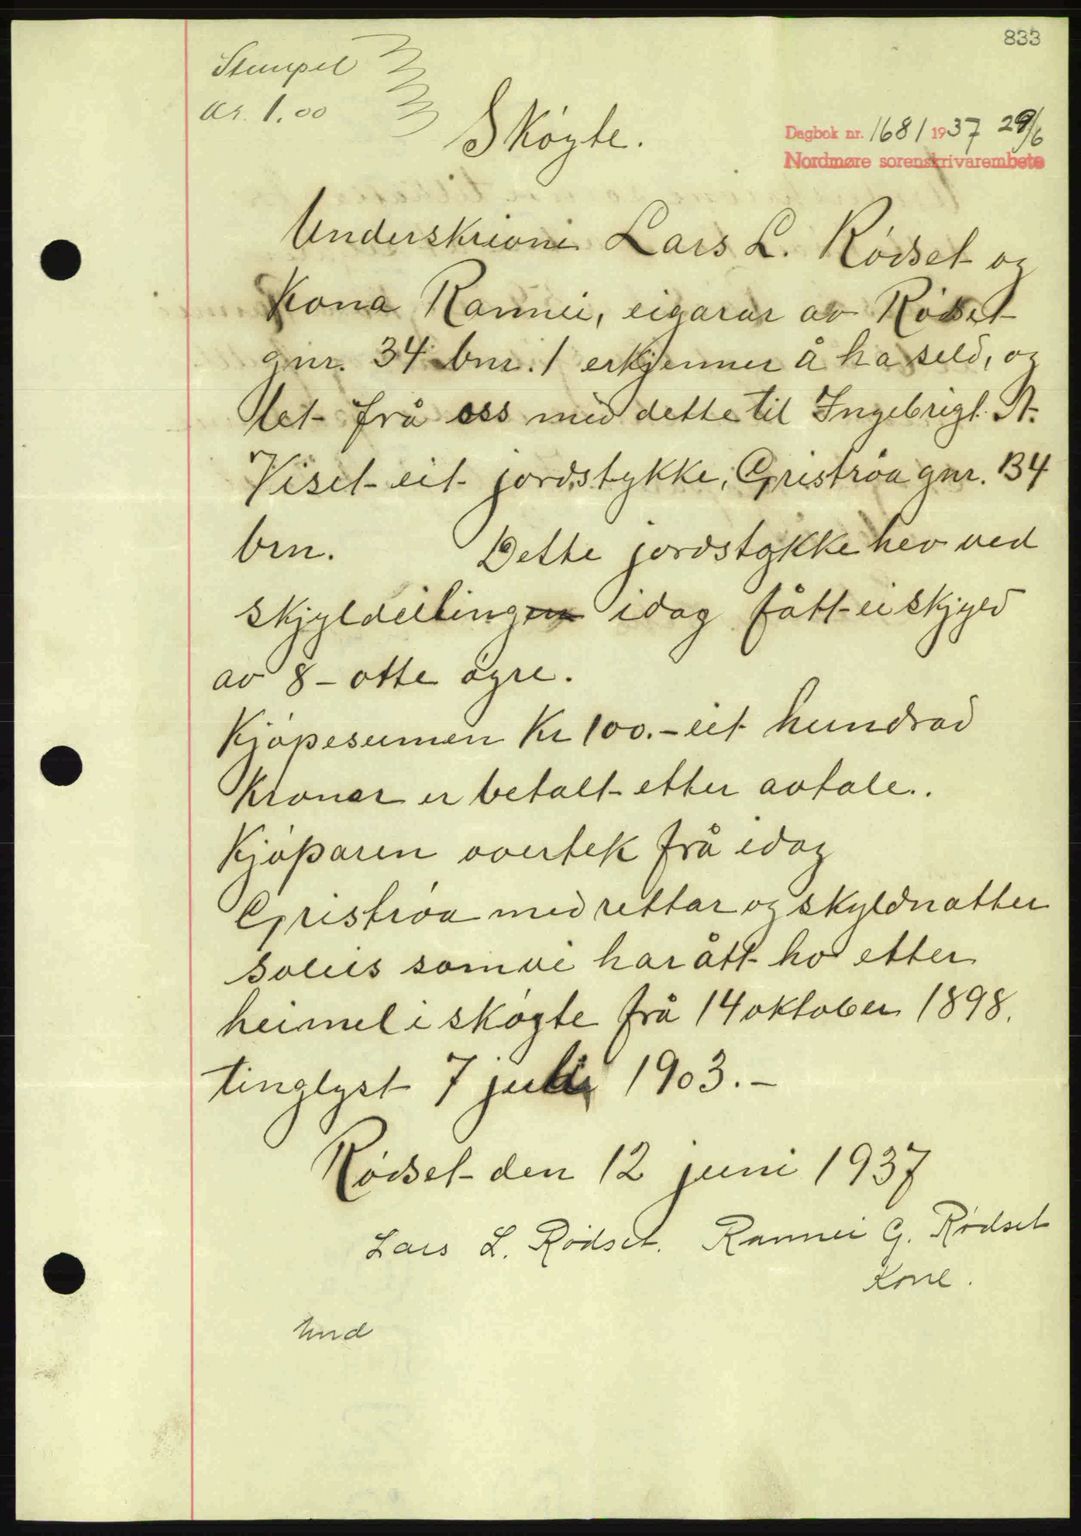 833
Stempel
Kr. 1.00
Skøyte.
Dagbok nr. 1681 1937 29/6
Nordmøre sorenskrivarembete
Underskrivne Lars L. Rødset og
Kona Rannei, eigarar av Rødset
gnr. 34 bnr. 1 erkjenner å ha seld, og
let frå oss med dette til Ingebrigt A.
Viset eit jordstykke, Gristrøa gnr. 134
bnr. Dette jordstykke hev ved
skjyldeiling idag fått ei skjyld
av 8 - otte øyre.
Kjøpesumen Kr 100.- eit hundrad
Kronar er betalt etter avtale.
Kjøparen overtek frå idag
Gristrøa med rettar og skyldnatter
soleis som vi har ått ho etter
heimel i skøyte frå 14 oktober 1898.
tinglyst 7 juli 1903.-
Rødset den 12 juni 1937
Lars L. Rødset. Rannei G. Rødset
Kone.